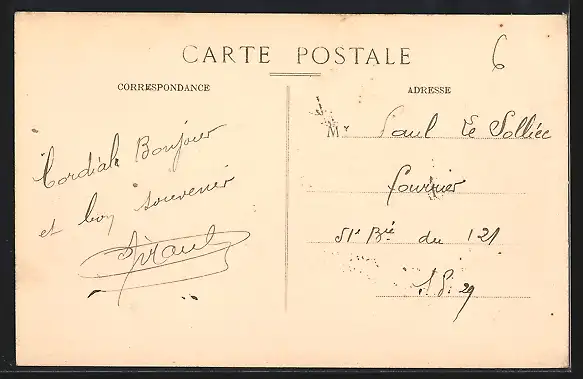 CARTE POSTALE
6
CORRESPONDANCE
ADRESSE
Cordiale Bonjour
et bon souvenir
Giraud
M Paul Le Solliec
fourrier
51e Bie du 121